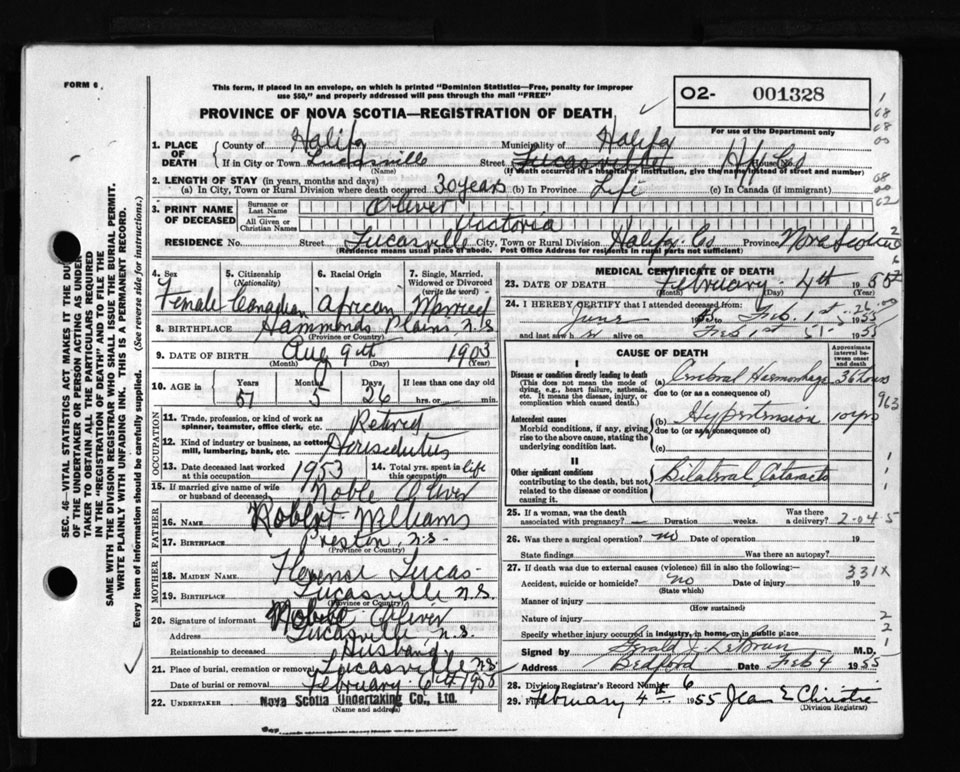 FORM 6.
This form, if placed in an envelope, on which is printed "Dominion Statistics—Free, penalty for improper
use $50," and properly addressed will pass through the mail "FREE"
PROVINCE OF NOVA SCOTIA—REGISTRATION OF DEATH
O2- 001328
For use of the Department only
1. PLACE OF DEATH
County of Halifax Municipality of Halifax
If in City or Town Lucasville Street Lucasville House No. Hfx Co
(Name) (If death occurred in a hospital or institution, give the name instead of street and number)
2. LENGTH OF STAY (in years, months and days)
(a) In City, Town or Rural Division where death occurred 30 years (b) In Province Life (c) In Canada (if immigrant)
3. PRINT NAME OF DECEASED
Surname or Last Name Oliver
All Given or Christian Names Victoria
RESIDENCE No. Street Lucasville City, Town or Rural Division Halifax Co Province Nova Scotia
(Residence means usual place of abode. Post Office Address for rural parts not sufficient)
4. Sex Female
5. Citizenship (Nationality) Canadian
6. Racial Origin African
7. Single, Married, Widowed or Divorced (write the word) Married
8. BIRTHPLACE Hammonds Plains, N.S.
(Province or Country)
9. DATE OF BIRTH Aug 9th 1903
(Month) (Day) (Year)
10. AGE in Years 51 Months 5 Days 26 If less than one day hrs. or min.
OCCUPATION
11. Trade, profession, or kind of work as spinner, teamster, office clerk, etc. Retired
12. Kind of industry or business, as cotton mill, lumbering, bank, etc. Houseduties
13. Date deceased last worked at this occupation 1953 14. Total yrs. spent in this occupation life
15. If married give name of wife or husband of deceased Noble Oliver
FATHER
16. NAME Robert Williams
17. BIRTHPLACE Preston, N.S.
(Province or Country)
MOTHER
18. MAIDEN NAME Lucas
19. BIRTHPLACE Lucasville N.S.
(Province or Country)
20. Signature of informant Oliver
Address Lucasville N.S.
Relationship to deceased Husband
21. Place of burial, cremation or removal Lucasville N.S.
Date of burial or removal February 6th 1955
22. UNDERTAKER Nova Scotia Undertaking Co., Ltd.
(Name and address)
MEDICAL CERTIFICATE OF DEATH
23. DATE OF DEATH February 4th 1955
(Month) (Day)
24. I HEREBY CERTIFY that I attended deceased from:
June to Feb. 1st 1955
and last saw h alive on Feb 1st 1955
CAUSE OF DEATH
Approximate interval between onset and death
I
Disease or condition directly leading to death
(This does not mean the mode of dying, e.g., heart failure, asthenia, etc. It means the disease, injury, or complication which caused death.)
(a) Cerebral Haemorrhage 36 hours
due to (or as a consequence of)
Antecedent causes
Morbid conditions, if any, giving rise to the above cause, stating the underlying condition last.
(b) Hypertension 10 yrs
due to (or as a consequence of)
(c)
II
Other significant conditions
contributing to the death, but not related to the disease or condition causing it.
Bilateral Cataracts
25. If a woman, was the death associated with pregnancy? — Duration weeks. Was there a delivery? 2-045
26. Was there a surgical operation? no Date of operation 19
State findings Was there an autopsy?
27. If death was due to external causes (violence) fill in also the following: 331X
Accident, suicide or homicide? no Date of injury 19
(State which)
Manner of injury
(How sustained)
Nature of injury
Specify whether injury occurred in industry, in home, or in public place
Signed by Gerald J. LeBrun M.D.
Address Bedford Date Feb 4 1955
28. Division Registrar's Record Number 6
29. Filed February 4th 1955 Jean E Christie
(Division Registrar)
SEC. 46—VITAL STATISTICS ACT MAKES IT THE DUTY
OF THE UNDERTAKER OR PERSON ACTING AS UNDER-
TAKER TO OBTAIN ALL THE PARTICULARS REQUIRED
IN THE "REGISTRATION OF DEATH" AND TO FILE THE
SAME WITH THE DIVISION REGISTRAR WHO SHALL ISSUE THE BURIAL PERMIT.
WRITE PLAINLY WITH UNFADING INK. THIS IS A PERMANENT RECORD.
Every item of information should be carefully supplied. (See reverse side for instructions.)